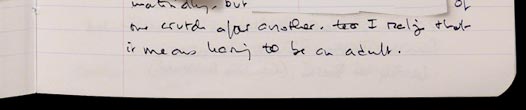 but of
one crutch after another. I realize that
it means having to be an adult.